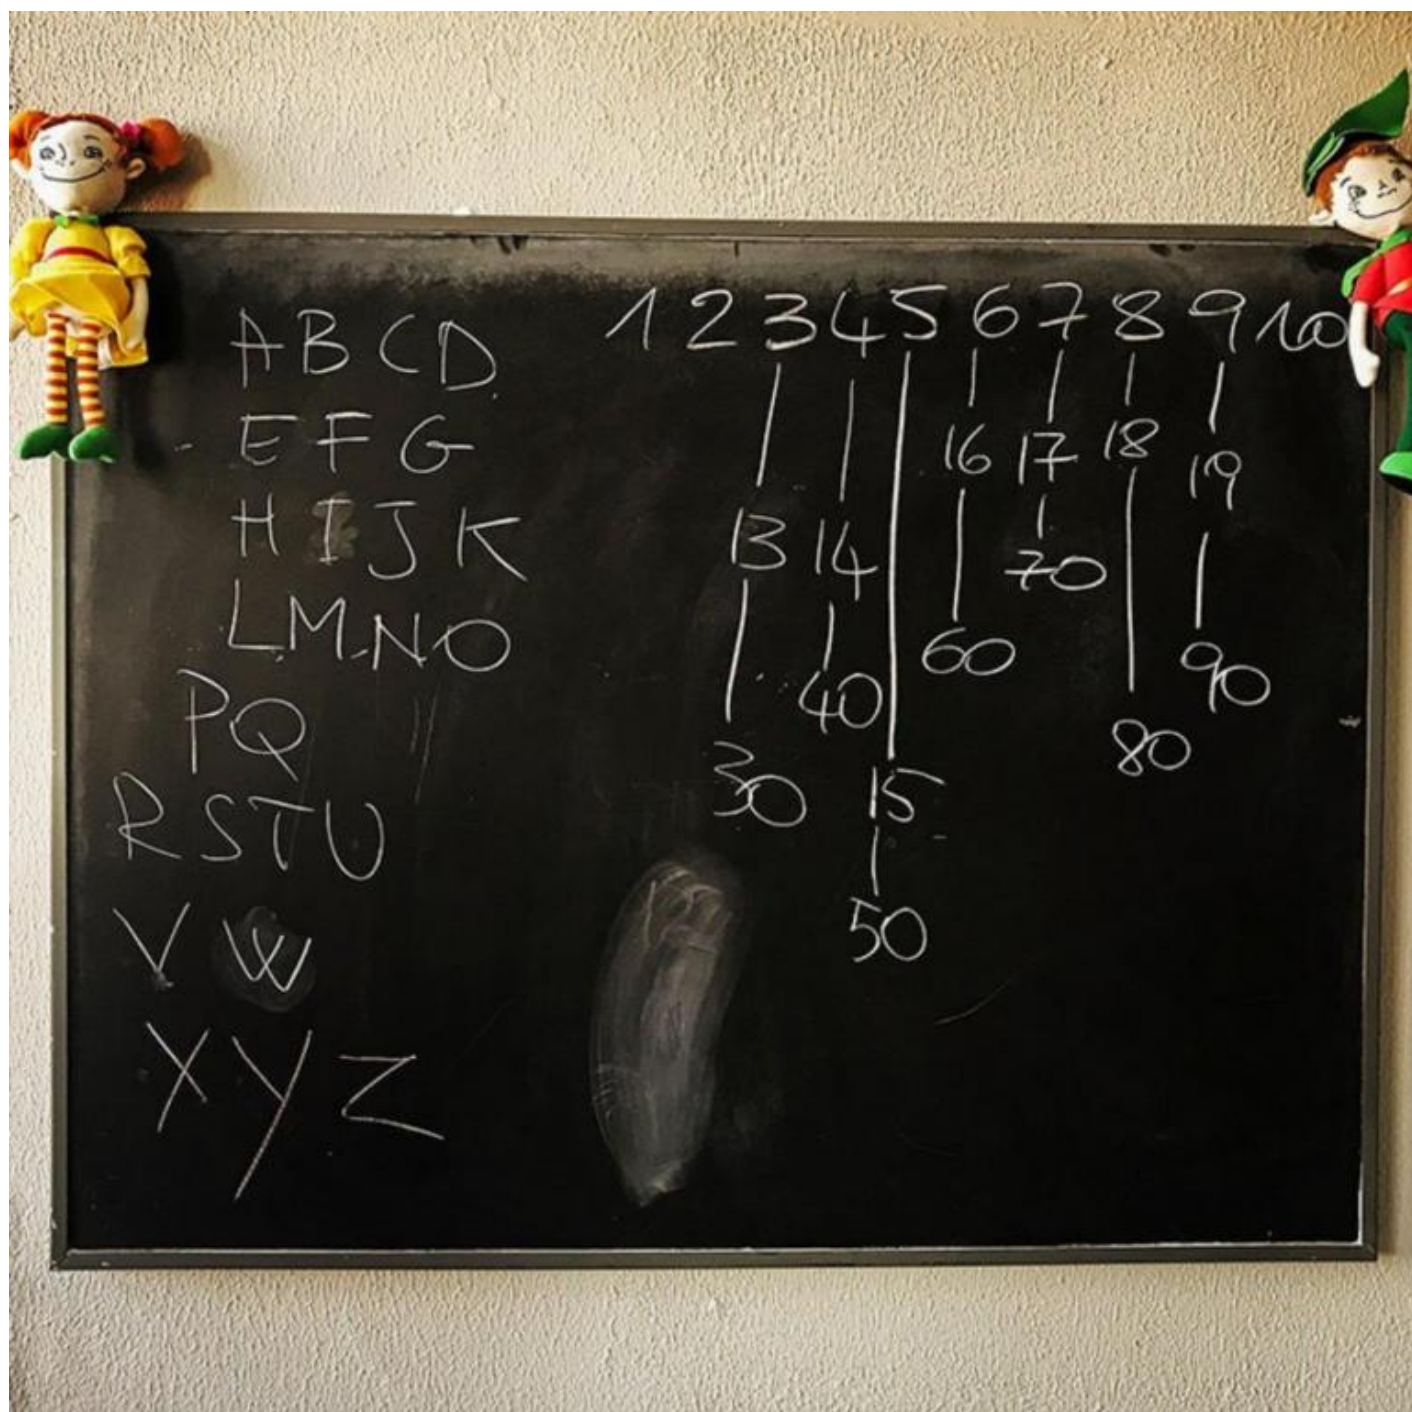 A B C D
E F G
H I J K
L M N O
P Q
R S T U
V W
X Y Z
1 2 3 4 5 6 7 8 9 10
16 17 18 19
13 14 70
60 90
40
30 15 80
50